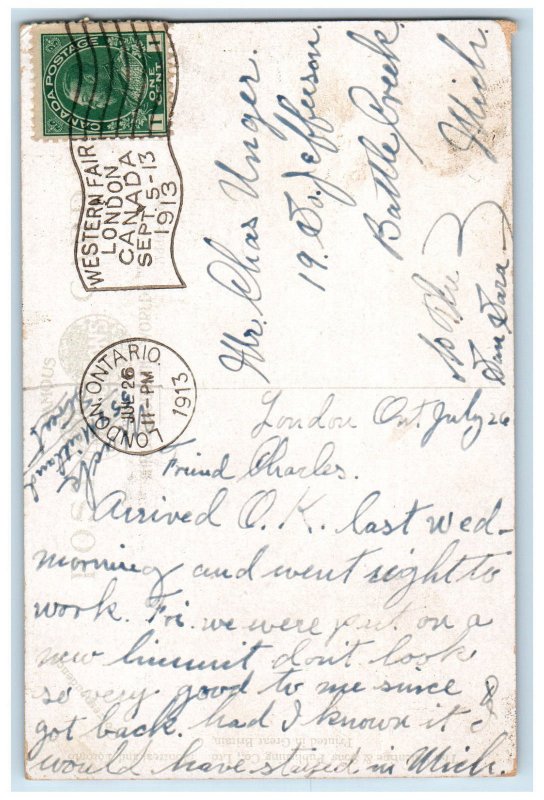 CANADA POSTAGE
1 ONE CENT 1
WESTERN FAIR
LONDON
CANADA
SEPT. 5-13
1913
LONDON. ONTARIO.
26
11-PM
1913
Mr. Chas Unger.
19. Jefferson.
Battle Creek
Mich.
London Ont. July 26
Friend Charles.
Arrived O.K. last Wed-
morning and went right to
work. Fri. we were put on a
new limmit dont look
so very good to me since I
got back. had I known it I
would have stayed in Mich.
Maitland
Street
POS
FAMOUS
& Sons Publishing Co. Ltd.
Printed in Great Britain.